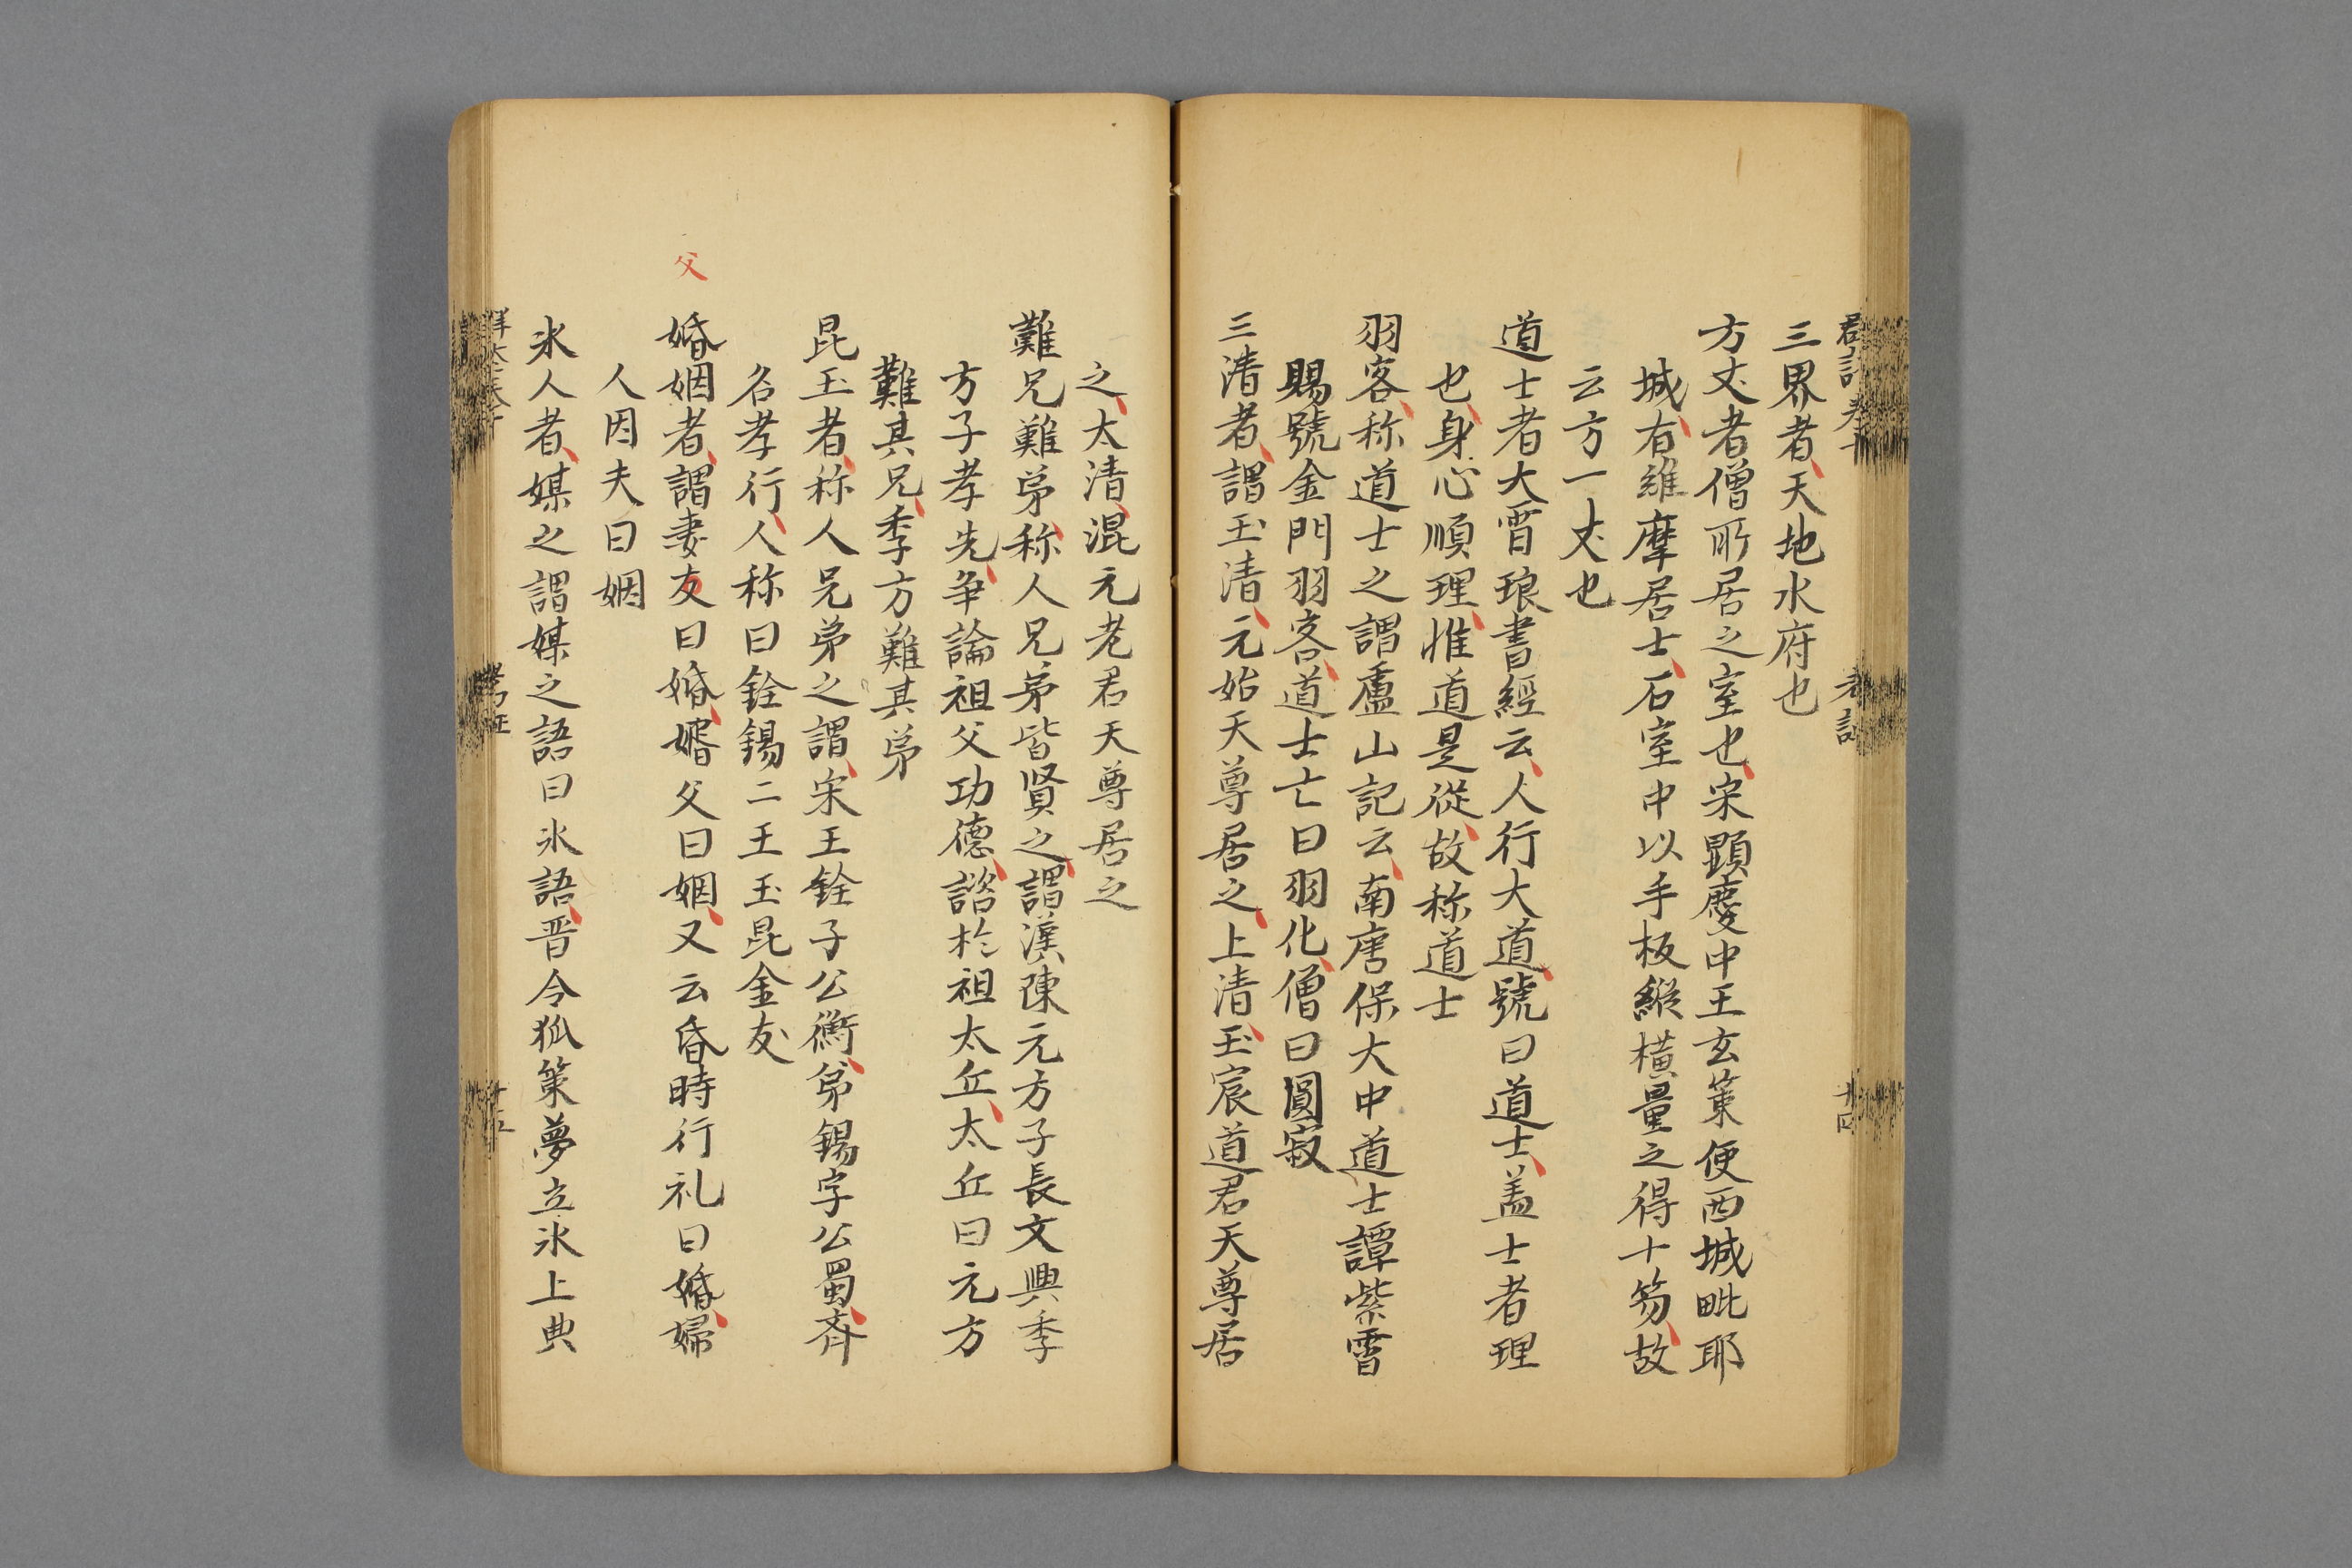 三界者天地水府也
方丈者僧所居之室也宋顕慶中王玄策使西城毗耶
城有維摩居士石室中以手板縱横量之得十笏故
云方一丈也
道士者大霄琅書經云人行大道號曰道士盖士者理
也身心順理惟道是從故称道士
羽客称道士之謂廬山記云南唐保大中道士譚紫霄
賜號金門羽客道士亡曰羽化僧曰圓寂
三清者謂玉清元始天尊居之上清玉宸道君天尊居
之太清混元老君天尊居之
難兄難弟称人兄弟皆賢之謂漢陳元方子長文與季
方子孝先争論祖父功德諮於祖太丘太丘曰元方
難其兄季方難其弟
昆玉者称人兄弟之謂宋王銓子公衡弟錫字公蜀斉
名孝行人称曰銓錫二王玉昆金友
父
婚姻者謂妻友曰婚婿父曰姻又云昏時行礼曰婚婦
人因夫曰姻
氷人者媒之謂媒之語曰氷語晋令狐策夢立氷上典